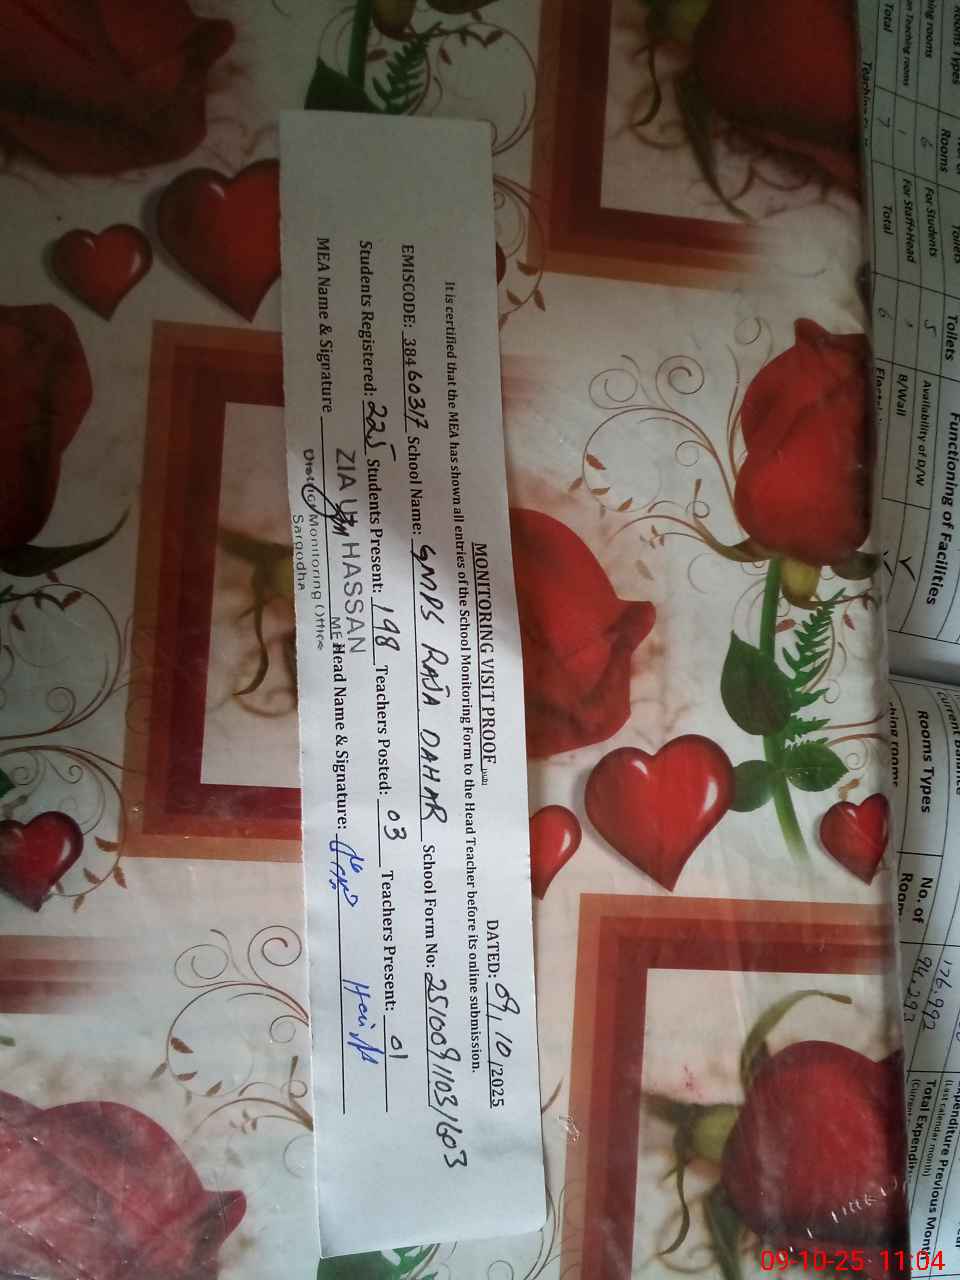 MONITORING VISIT PROOF
DATED: 09, 10 /2025
It is certified that the MEA has shown all entries of the School Monitoring Form to the Head Teacher before its online submission.
EMISCODE: 38460317 School Name: GMPS RAJA DAHAR School Form No: 2510091103/1603
Students Registered: 225 Students Present: 198 Teachers Posted: 03 Teachers Present: 01
MEA Name & Signature Head Name & Signature:
ZIA UL HASSAN
MEA
District Monitoring Office
Sargodha
Rooms
Toilets
Functioning of Facilities
6
For Students
5
Availability of D/W
✓
Teaching rooms
1
For Staff+Head
B/Wall
Total
7
Total
6
Rooms Types
No. of
176,992
94,293
Expenditure Previous Month
(Last calendar month)
09-10-25 11:04